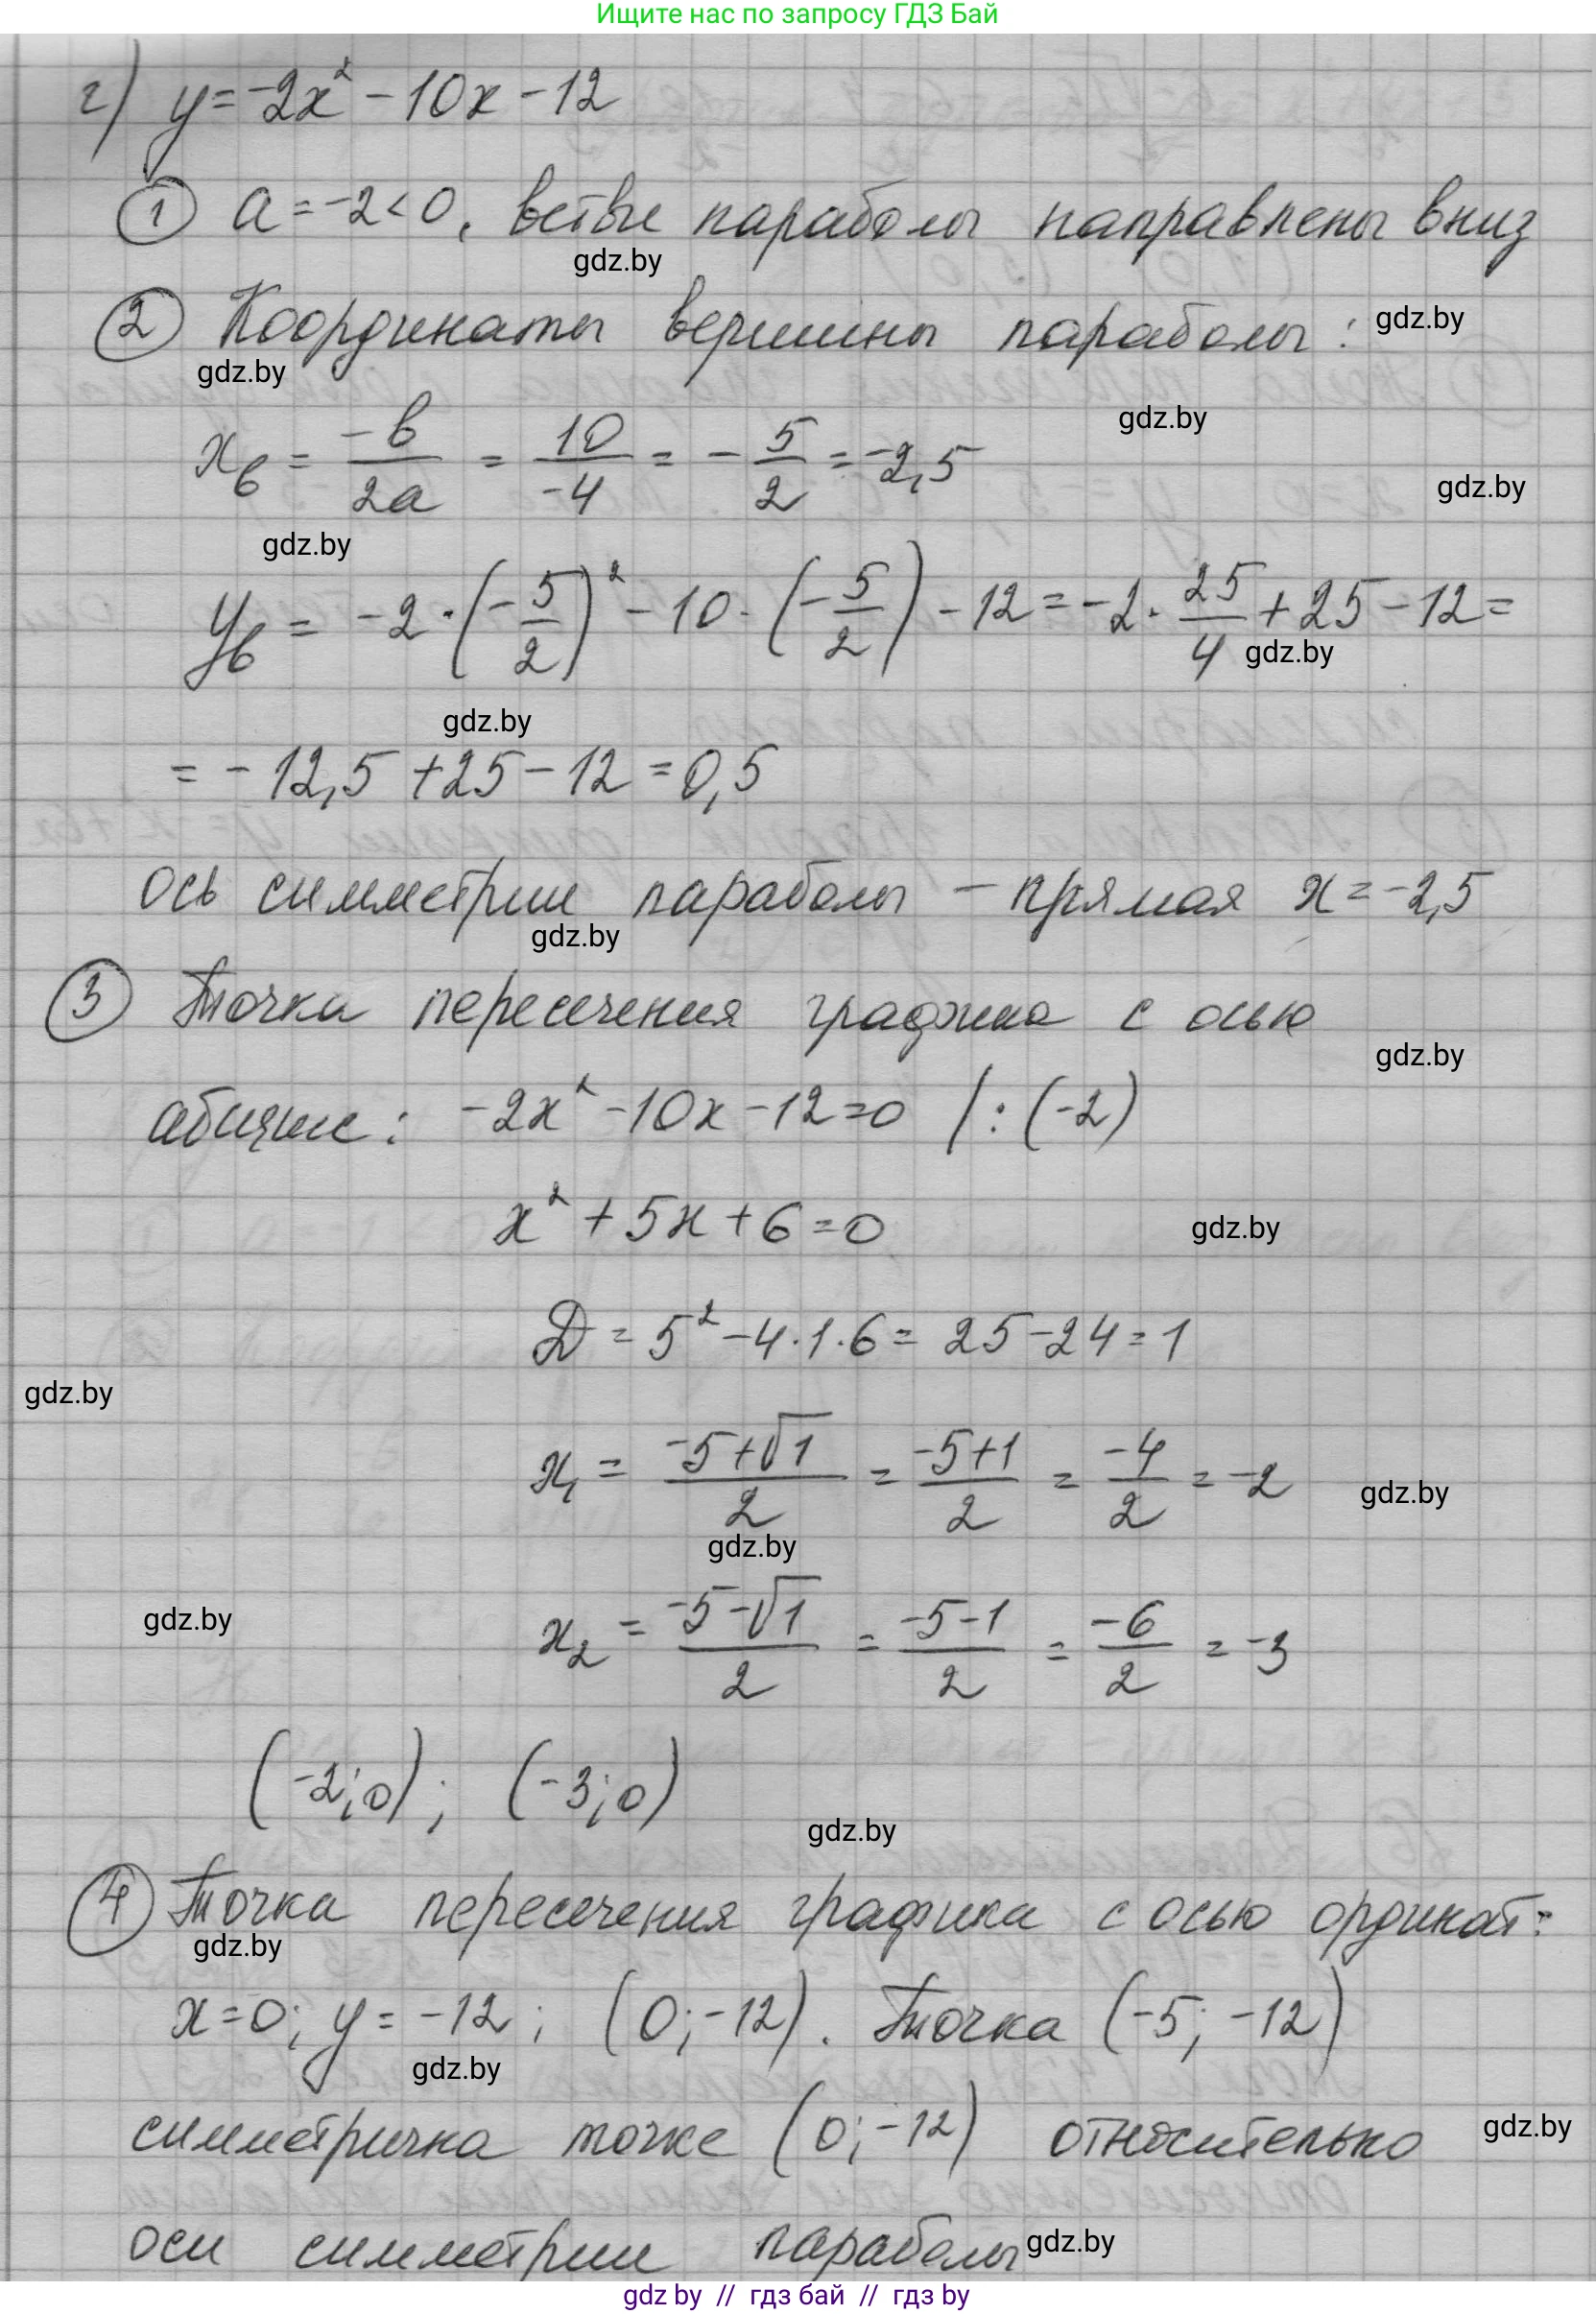 Ищите нас по запросу ГДЗ Бай
г) y=-2x² - 10x - 12
① a=-2<0, ветви параболы направлены вниз
gdz.by
② Координаты вершины параболы: gdz.by
gdz.by
gdz.by
xв = -b/2a = 10/-4 = - 5/2 = -2,5
gdz.by
gdz.by
yв = -2·(-5/2)² - 10·(-5/2) - 12 = -2·25/4 + 25 - 12 =
gdz.by
gdz.by
= - 12,5 + 25 - 12 = 0,5
ось симметрии параболы - прямая x = -2,5
gdz.by
③ Точка пересечения графика с осью
gdz.by
абсцисс: -2x² - 10x - 12 = 0 /:(-2)
x² + 5x + 6 = 0
gdz.by
D = 5² - 4·1·6 = 25 - 24 = 1
gdz.by
x₁ = -5+√1/2 = -5+1/2 = -4/2 = -2
gdz.by
gdz.by
gdz.by
x₂ = -5-√1/2 = -5-1/2 = -6/2 = -3
(-2;0); (-3;0)
gdz.by
④ Точка пересечения графика с осью ординат:
gdz.by
x=0; y=-12; (0;-12). Точка (-5; -12)
gdz.by
симметрична точке (0;-12) относительно
gdz.by
оси симметрии параболы
gdz.by
gdz by // гдз бай // гдз by